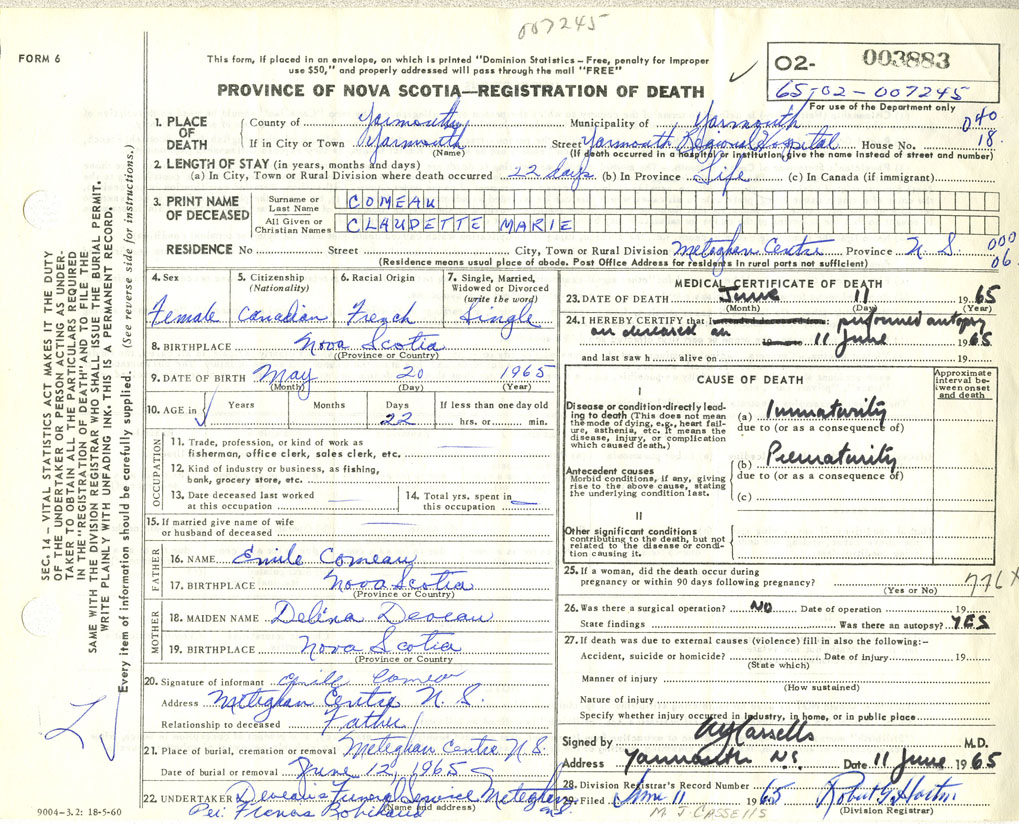 007245
FORM 6
This form, if placed in an envelope, on which is printed "Dominion Statistics – Free, penalty for improper
use $50," and properly addressed will pass through the mail "FREE"
PROVINCE OF NOVA SCOTIA—REGISTRATION OF DEATH
O2- 003883
65-02-007245
For use of the Department only
040
18.
1. PLACE OF DEATH
County of Yarmouth Municipality of Yarmouth
If in City or Town Yarmouth Street Yarmouth Regional Hospital House No.
(Name) (If death occurred in a hospital or institution, give the name instead of street and number)
2. LENGTH OF STAY (in years, months and days)
(a) In City, Town or Rural Division where death occurred 22 days (b) In Province Life (c) In Canada (if immigrant)
3. PRINT NAME OF DECEASED
Surname or Last Name COMEAU
All Given or Christian Names CLAUDETTE MARIE
RESIDENCE No Street City, Town or Rural Division Meteghan Centre Province N. S.
000
06.
(Residence means usual place of abode. Post Office Address for residents in rural parts not sufficient)
4. Sex
Female
5. Citizenship
(Nationality)
Canadian
6. Racial Origin
French
7. Single, Married,
Widowed or Divorced
(write the word)
Single
8. BIRTHPLACE Nova Scotia
(Province or Country)
9. DATE OF BIRTH May 20 1965
(Month) (Day) (Year)
10. AGE in Years Months Days If less than one day old
22 hrs. or min.
OCCUPATION
11. Trade, profession, or kind of work as
fisherman, office clerk, sales clerk, etc.
12. Kind of industry or business, as fishing,
bank, grocery store, etc.
13. Date deceased last worked
at this occupation
14. Total yrs. spent in
this occupation
15. If married give name of wife
or husband of deceased
FATHER
16. NAME Emile Comeau
17. BIRTHPLACE Nova Scotia
(Province or Country)
MOTHER
18. MAIDEN NAME Delina Deveau
19. BIRTHPLACE Nova Scotia
(Province or Country)
20. Signature of informant Emile Comeau
Address Meteghan Centre N. S.
Relationship to deceased Father
21. Place of burial, cremation or removal Meteghan Centre N. S.
Date of burial or removal June 12, 1965
22. UNDERTAKER Funeral Service Meteghan
(Name and address)
N.S.
Per.
9004-3.2: 18-5-60
MEDICAL CERTIFICATE OF DEATH
23. DATE OF DEATH June 11 1965
(Month) (Day) (Year)
24. I HEREBY CERTIFY that I performed autopsy
on deceased on 11 June 1965
and last saw h alive on 19
CAUSE OF DEATH
Approximate
interval be-
tween onset
and death
I
Disease or condition-directly lead-
ing to death (This does not mean
the mode of dying, e.g., heart fail-
ure, asthenia, etc. It means the
disease, injury, or complication
which caused death.)
(a) Immaturity
due to (or as a consequence of)
Antecedent causes
Morbid conditions, if any, giving
rise to the above cause, stating
the underlying condition last.
(b) Prematurity
due to (or as a consequence of)
(c)
II
Other significant conditions
contributing to the death, but not
related to the disease or condi-
tion causing it.
25. If a woman, did the death occur during
pregnancy or within 90 days following pregnancy?
(Yes or No)
776X
26. Was there a surgical operation? NO Date of operation 19
State findings Was there an autopsy? YES
27. If death was due to external causes (violence) fill in also the following:–
Accident, suicide or homicide? Date of injury 19
(State which)
Manner of injury
(How sustained)
Nature of injury
Specify whether injury occurred in industry, in home, or in public place
Signed by Cassells M.D.
Address Yarmouth N.S. Date 11 June 1965
28. Division Registrar's Record Number
29. Filed June 11 1965 Robert G. Horton
M. J. CASSELLS (Division Registrar)
SEC. 14 – VITAL STATISTICS ACT MAKES IT THE DUTY
OF THE UNDERTAKER OR PERSON ACTING AS UNDER-
TAKER TO OBTAIN ALL THE PARTICULARS REQUIRED
IN THE "REGISTRATION OF DEATH" AND TO FILE THE
SAME WITH THE DIVISION REGISTRAR WHO SHALL ISSUE THE BURIAL PERMIT.
WRITE PLAINLY WITH UNFADING INK. THIS IS A PERMANENT RECORD.
Every item of information should be carefully supplied. (See reverse side for instructions.)